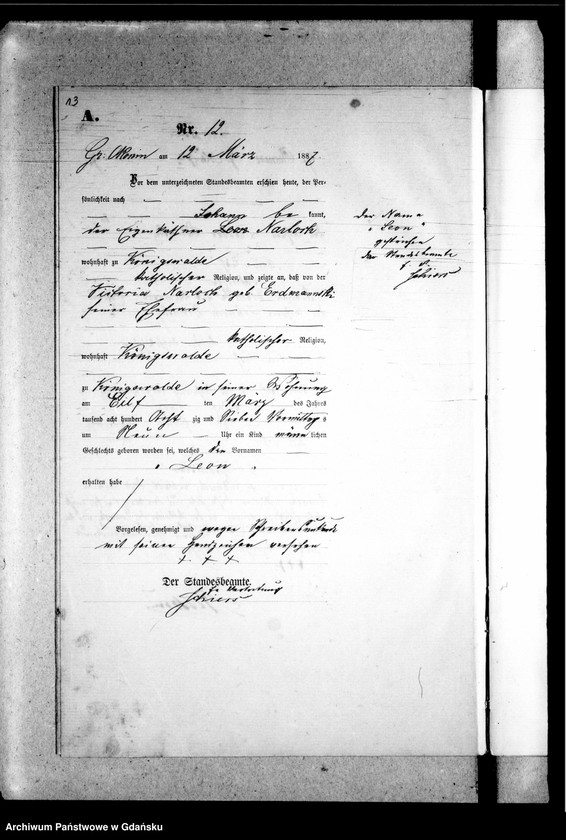 13
A.
Nr. 12.
am 12 März 1887
Vor dem unterzeichneten Standesbeamten erschien heute, der Per-
sönlichkeit nach
Johann be kannt,
der Eigenkäthner Leon Narloch
der Name
"Leon"
gestrichen
der Standesbeamte
wohnhaft zu Königswalde
katholischer Religion, und zeigte an, daß von der
Victoria Narloch geb. Erdmannski
seiner Ehefrau
katholischer Religion,
wohnhaft Königswalde
zu Königswalde in seiner Wohnung
am Elf ten März des Jahres
tausend acht hundert Acht zig und Sieben Vormittag s
um Neun Uhr ein Kind männ lichen
Geschlechts geboren worden sei, welches den Vornamen
"Leon"
erhalten habe
Vorgelesen, genehmigt und wegen Schreibensunkunde
mit seinem Handzeichen versehen
+ + +
Der Standesbeamte.
In Vertretung
Archiwum Państwowe w Gdańsku